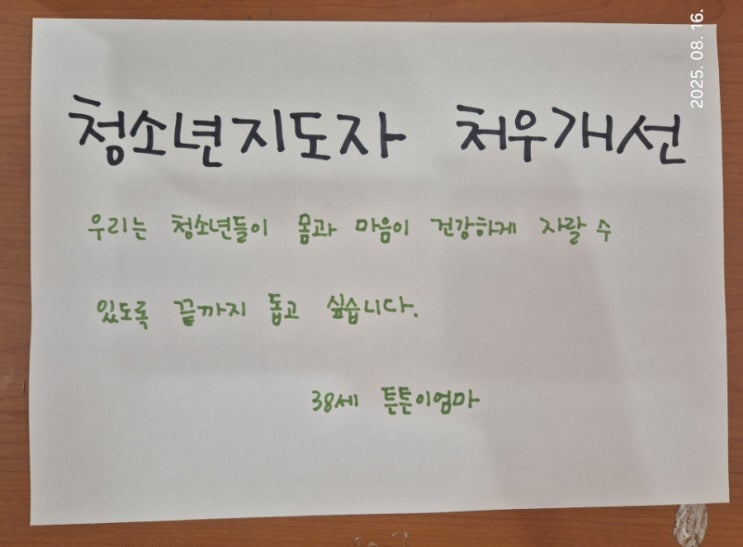 청소년지도자 처우개선
우리는 청소년들이 몸과 마음이 건강하게 자랄 수
있도록 끝까지 돕고 싶습니다.
38세 튼튼이엄마
2025. 08. 16.